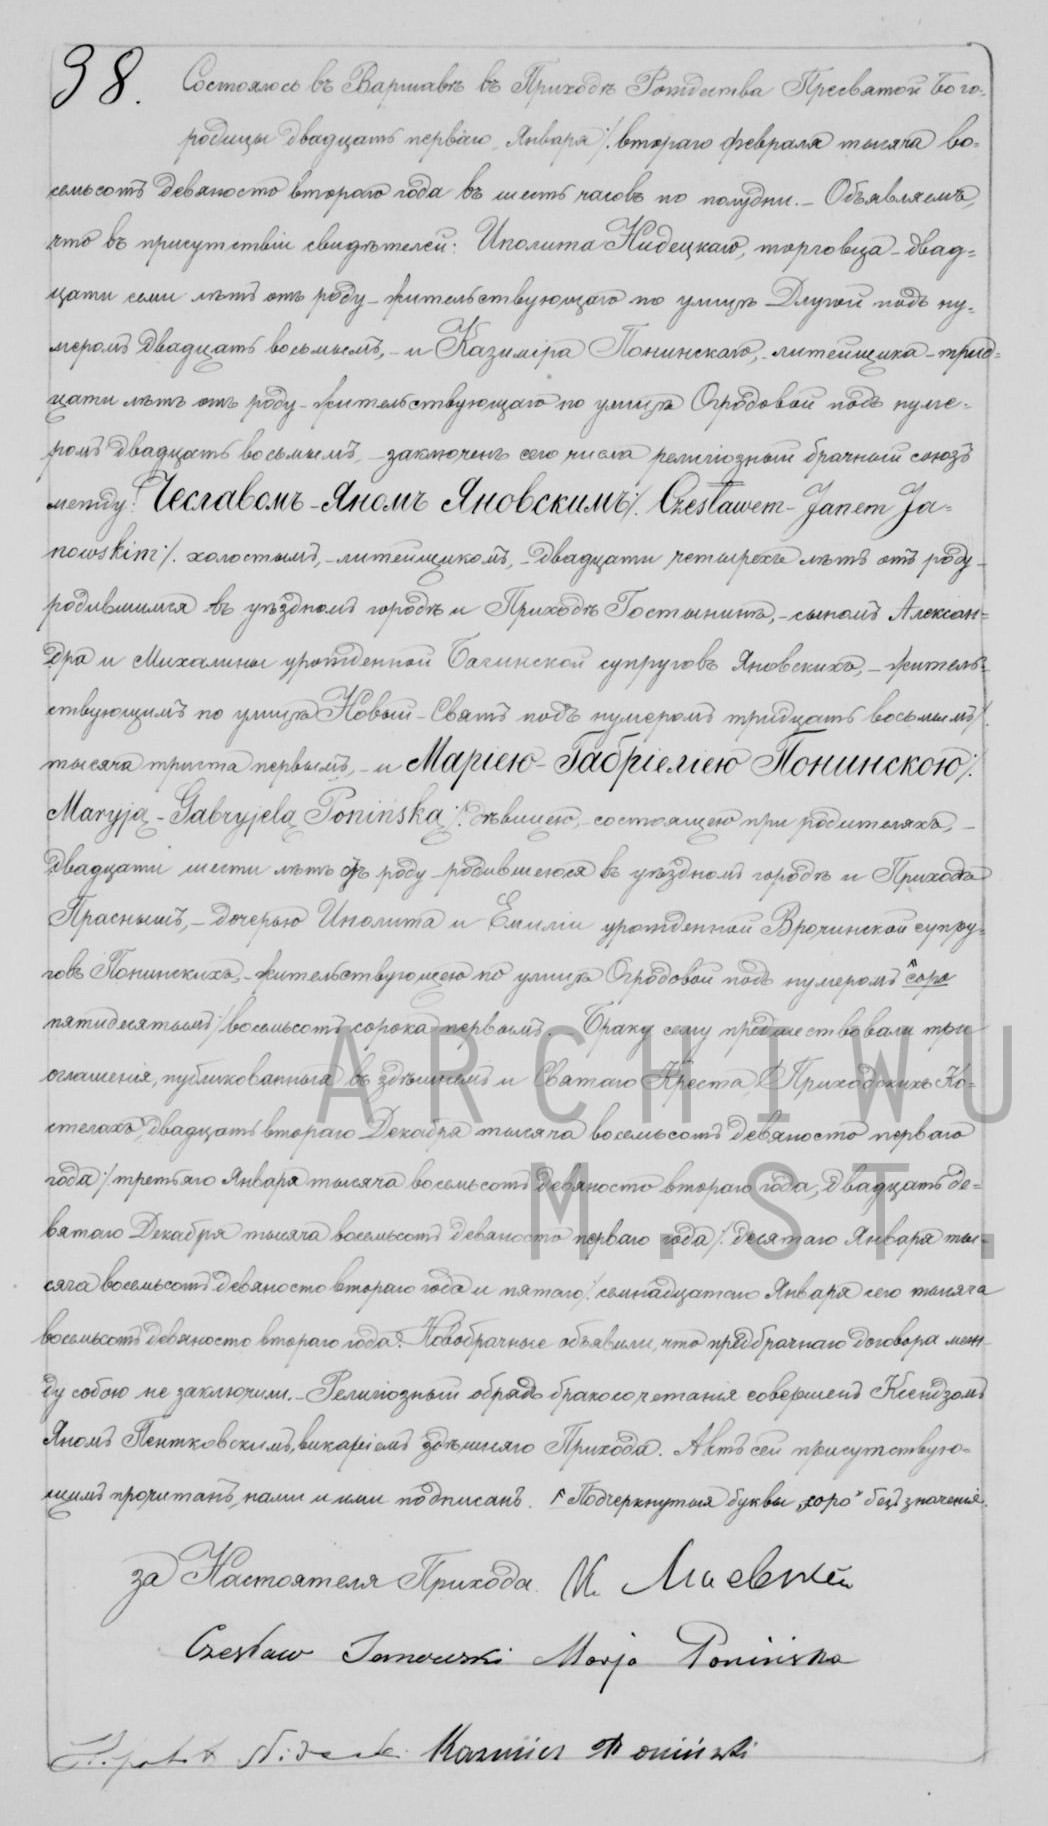 98.
Состоялось въ Варшавѣ въ Приходѣ Рождества Пресвятой Бого-
родицы двадцать перваго Января /. втораго февраля тысяча во-
семьсотъ девяносто втораго года въ шесть часовъ по полудни. – Объявляемъ,
что въ присутствіи свидѣтелей: Иполита Нидецкаго, торговца – двад-
цати семи лѣтъ отъ роду – жительствующаго по улицѣ Длугой подъ ну-
меромъ двадцать восьмымъ, – и Казиміра Понинскаго, – литейщика – трид-
цати лѣтъ отъ роду – жительствующаго по улицѣ Огродовой подъ нуме-
ромъ двадцать восьмымъ, – заключенъ сего числа религіозный брачный союзъ
между: Чеславомъ – Яномъ Яновскимъ /. Czesławem – Janem Ja-
nowskim /. холостымъ, – литейщикомъ, – двадцати четырехъ лѣтъ отъ роду –
родившимся въ уѣздномъ городѣ и Приходѣ Гостынинѣ, – сыномъ Алексан-
дра и Михалины урожденной Багинской супруговъ Яновскихъ, – житель-
ствующимъ по улицѣ Новый – Святъ подъ нумеромъ тридцать восьмымъ /.
тысяча триста первымъ, – и Маріею – Габріеліею Понинскою /.
Maryją – Gabryjelą Ponińską /. дѣвицею, – состоящею при родителяхъ, –
двадцати шести лѣтъ отъ роду – родившеюся въ уѣздномъ городѣ и Приходѣ
Праснышъ, – дочерью Иполита и Емиліи урожденной Врочинской супру-
говъ Понинскихъ, – жительствующею по улицѣ Огродовой подъ нумеромъ соро
пятидесятымъ / восемьсотъ сорока первымъ. Браку сему предшествовали три
оглашенія, публикованныя въ здѣшнемъ и Святаго Креста Приходскихъ Ко-
стелахъ, двадцать втораго Декабря тысяча восемьсотъ девяносто перваго
года /. третьяго Января тысяча восемьсотъ девяносто втораго года, двадцать де-
вятаго Декабря тысяча восемьсотъ девяносто перваго года /. десятаго Января ты-
сяча восемьсотъ девяносто втораго года и пятаго /. семнадцатаго Января сего тысяча
восемьсотъ девяносто втораго года. Новобрачные объявили, что предбрачнаго договора меж-
ду собою не заключили. – Религіозный обрядъ бракосочетанія совершенъ Ксендзомъ
Яномъ Пентковскимъ, викаріемъ здѣшняго Прихода. Актъ сей присутствую-
щимъ прочитанъ, нами и ими подписанъ. Подчеркнутыя буквы „соро“ безъ значенія.
за Настоятеля Прихода
Czesław Janowski Marja Ponińska
Kazmierz Poniński
ARCHIWUM
M. ST.